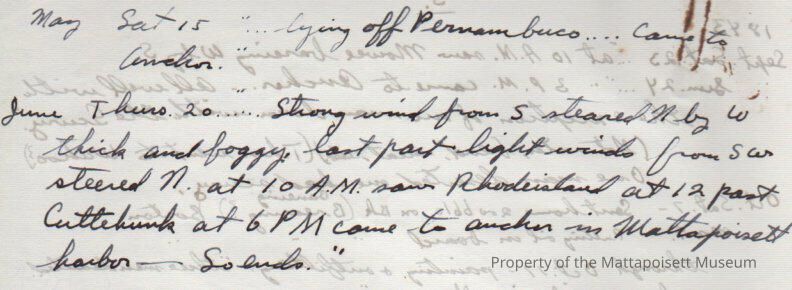 May Sat 15 "... lying off Pernambuco.... Came to
anchor."
June Thurs. 20..... Strong wind from S steared N by W
thick and foggy. last part light winds from SW
steered N. at 10 A.M. saw Rhodeisland at 12 past
Cuttehunk at 6 PM came to anchor in Mattapoisett
harbor — So ends."
Property of the Mattapoisett Museum